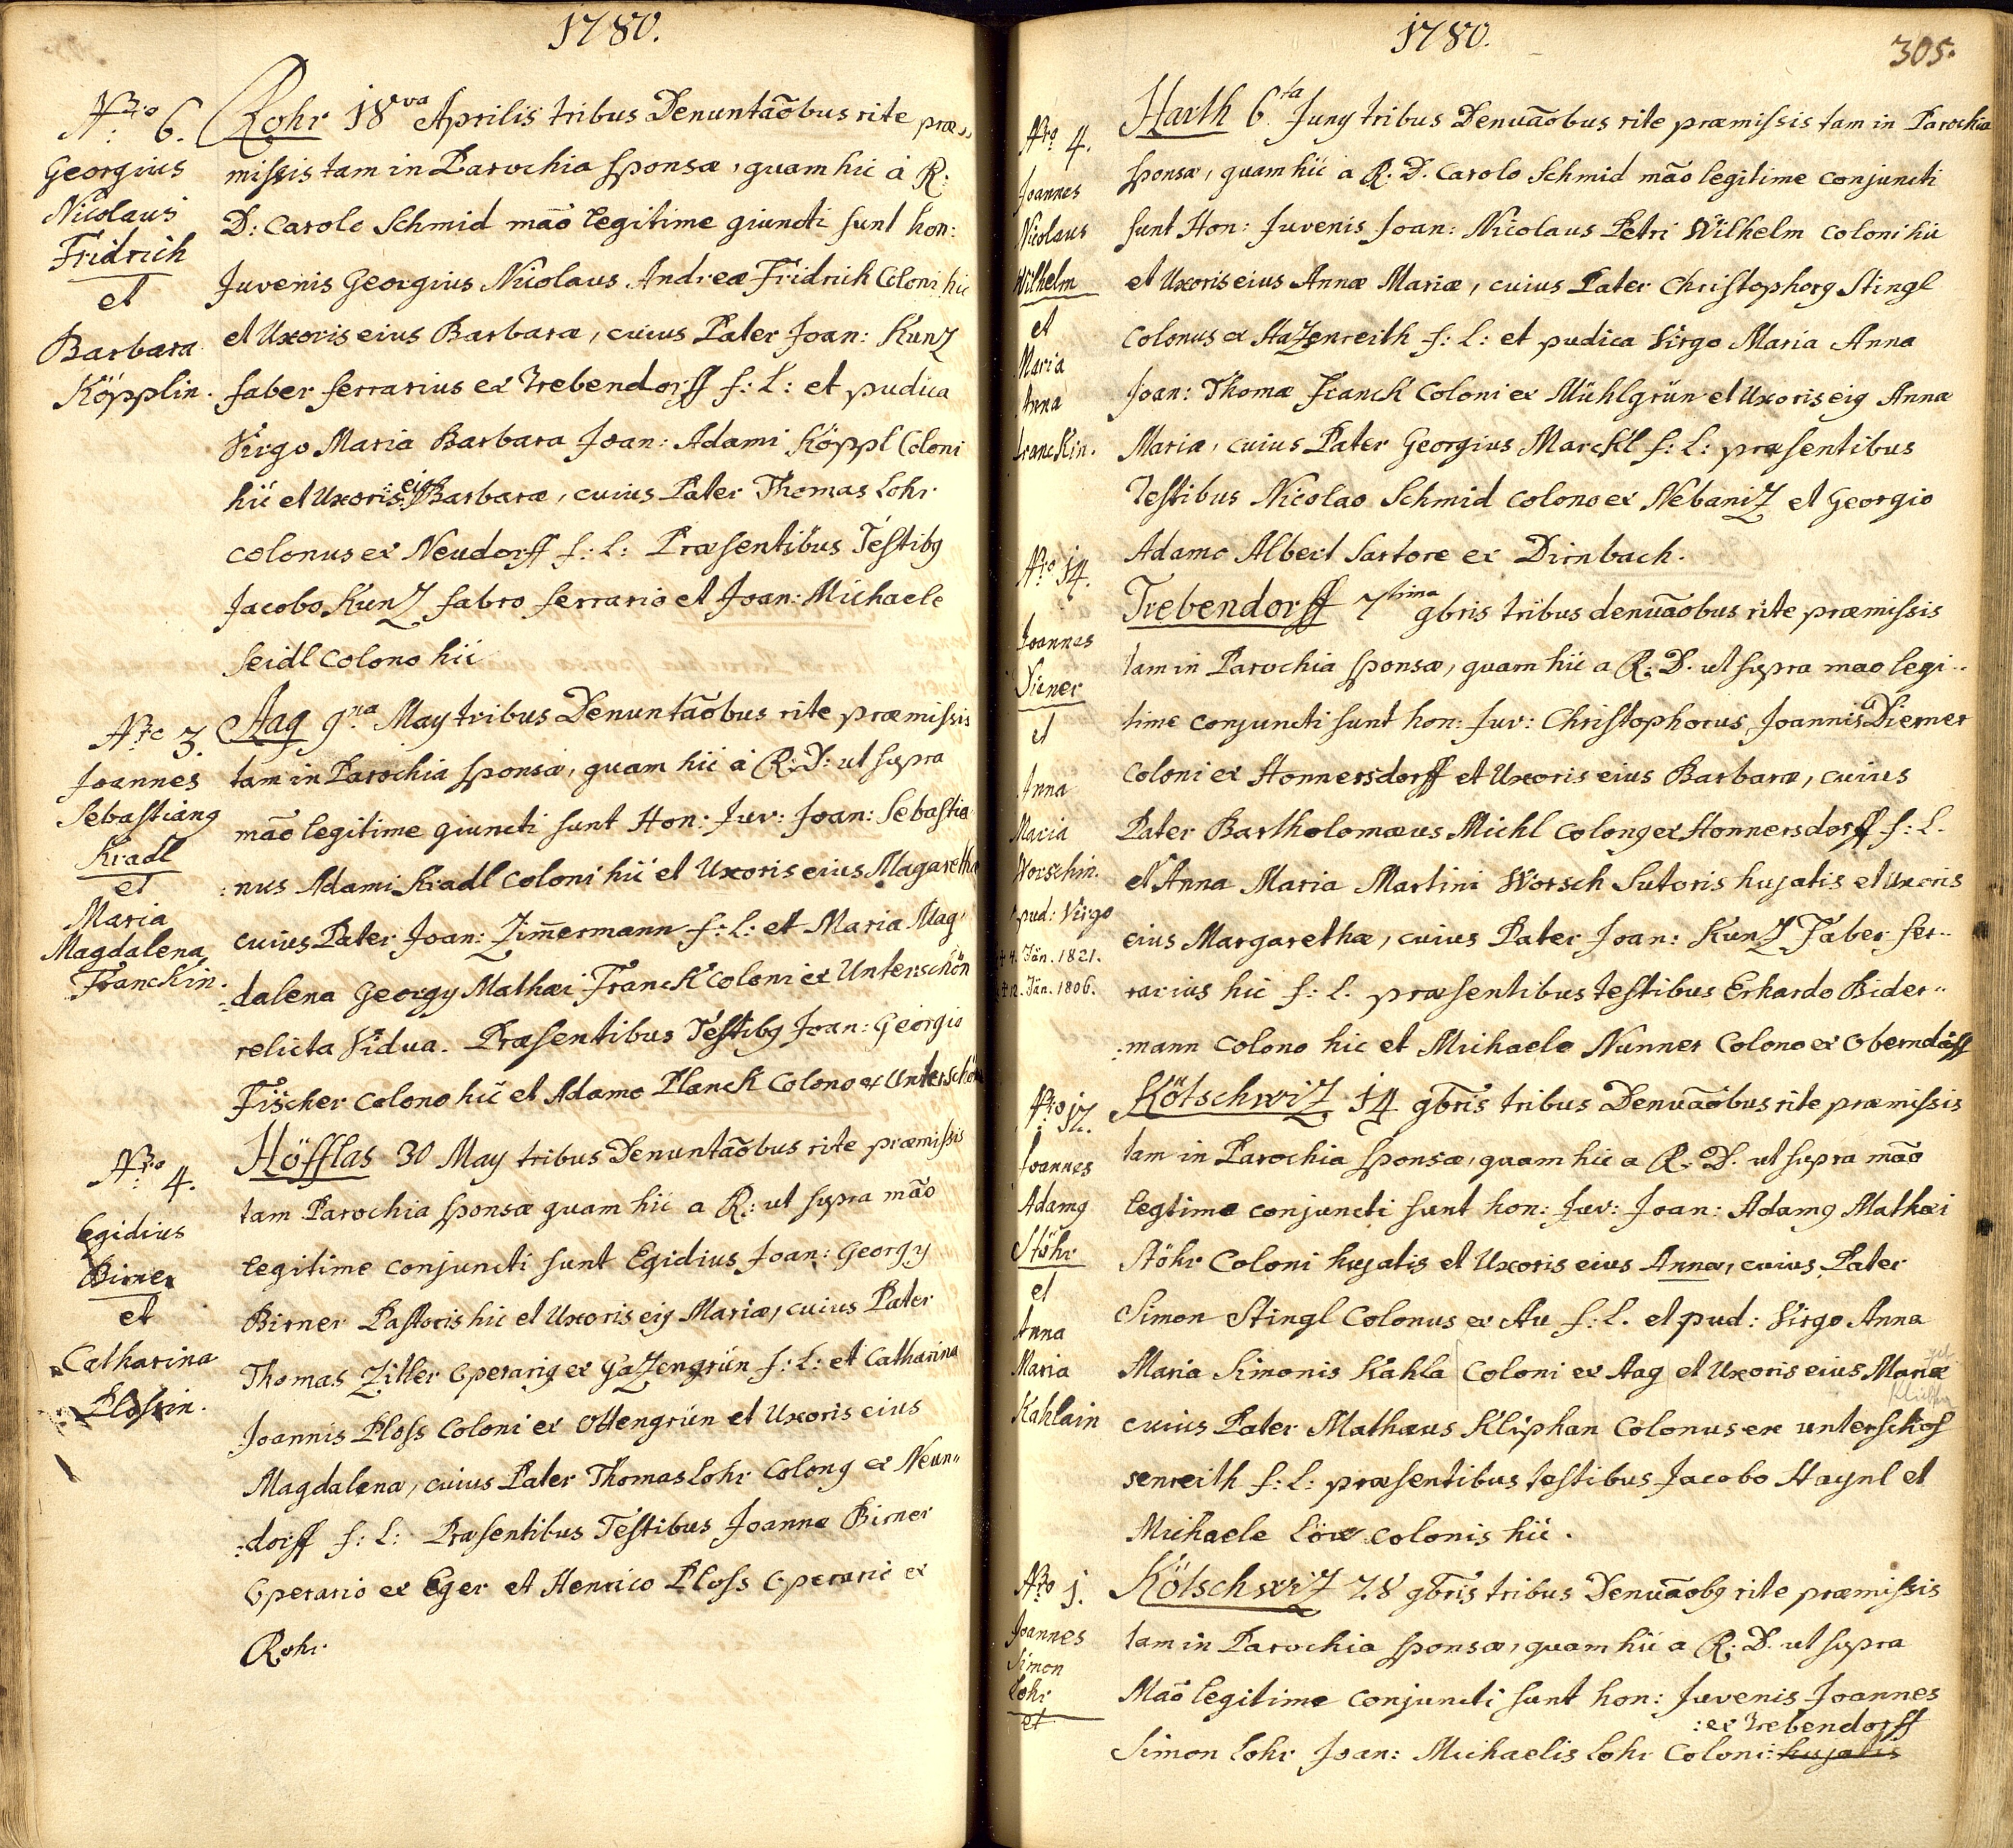 1780.
Nro 6.
Georgius
Nicolaus
Fridrich
et
Barbara
Köpplin.
Rohr 18va Aprilis tribus Denuntaõbus rite præ=
missis tam in Parochia sponsæ, quam hic à R:
D: Carolo Schmid mãō legitime giuncti sunt hon:
Juvenis Georgius Nicolaus Andreæ Fridrich Coloni hic
et Uxoris eius Barbaræ, cuius Pater Joan: Kunz
faber ferrarius ex Trebendorff f: L: et pudica
Virgo Maria Barbara Joan: Adami Köppl Coloni
hic et Uxoris eius Barbaræ, cuius Pater Thomas Lohr
colonus ex Neudorff f: L: Præsentibus Testibg
Jacobo Kunz fabro ferrario et Joan: Michaele
Seidl colono hic
Nro 3.
Joannes
Sebastiang
Kradl
et
Maria
Magdalena
Franckin.
Aag 9na May tribus Denuntaõbus rite præmissis
tam in Parochia sponsæ, quam hic à R: D: ut supra
mãō legitime giuncti sunt Hon: Juv: Joan: Sebastia
:nus Adami Kradl coloni hic et Uxoris eius Magaretha
cuius Pater Joan: Zim̄ermann f: L: et Maria Mag:
:dalena Georgy Mathæi Franck coloni ex Unterschön
relicta Vidua. Præsentibus Testibg Joan: Georgio
Fischer colono hic et Adamo Planck colono ex Unterschön
Nro 4.
Egidius
Birner
et
Catharina
Plossin.
Höfflas 30 May tribus Denuntaõbus rite præmissis
tam Parochia sponsæ quam hic a R: ut supra mãō
legitime conjuncti sunt Egidius Joan: Georgy
Birner Pastoris hic et Uxoris eig Mariæ, cuius Pater
Thomas Zitler Operarig ex Gazengrün f: L: et Catharina
Joannis Ploss Coloni ex Ottengrün et Uxoris eius
Magdalena, cuius Pater Thomas Lohr Colong ex Neun=
:dorff f: L: Præsentibus Testibus Joanne Birner
Operario ex Eger et Henrico Ploss Operario ex
Rohr
1780.
305.
Nro 4.
Joannes
Nicolaus
Wilhelm
et
Maria
Anna
Franckin.
Harth 6ta Juny tribus Denuãobus rite præmissis tam in Parochia
sponsæ, quam hic a R. D. Carolo Schmid mãō legitime conjuncti
sunt Hon: Juvenis Joan: Nicolaus Petri Wilhelm coloni hic
et Uxoris eius Annæ Mariæ, cuius Pater Christophorg Stingl
Colonus ex Hazenreith f: L: et pudica Virgo Maria Anna
Joan: Thomæ Franck Coloni ex Mühlgrün et Uxoris eig Annæ
Maria, cuius Pater Georgius Marckl f: L: præsentibus
Testibus Nicolao Schmid colono ex Nebaniz et Georgio
Adamo Albert Sartore ex Dirnbach.
Nro 14.
Joannes
Diener
et
Anna
Maria
Worschin.
pud: Virgo
+ 4. Jän. 1821.
+ 12. Jän. 1806.
Trebendorff 7tima 9bris tribus denuãobus rite præmissis
tam in Parochia sponsæ, quam hic a R: D. ut supra mao legi=
time conjuncti sunt hon: Juv: Christophorus Joannis Diener
coloni ex Honnersdorff et Uxoris eius Barbaræ, cuius
Pater Bartholomæus Michl colong ex Honnersdorff f: L.
et Anna Maria Martini Worsch Sutoris hujatis et Uxoris
eius Margarethæ, cuius Pater Joan: Kunz Faber fer=
rarius hic f: L. præsentibus testibus Erhardo Bider=
:mann colono hic et Michaele Nunner Colono ex Oberndorff
Nro 12.
Joannes
Adamg
Stöhr
et
Anna
Maria
Kahlain
Kötschwiz 14 9bris tribus Denuãobus rite præmissis
tam in Parochia sponsæ, quam hic a R: D. ut supra mãō
legtime conjuncti sunt hon: Juv: Joan: Adamg Mathæi
Stöhr Coloni hujatis et Uxoris eius Annæ, cuius Pater
Simon Stingl Colonus ex Au f: L. et pud: Virgo Anna
Maria Simonis Kahla Coloni ex Aag et Uxoris eius Mariæ
cuius Pater Mathæus Kliphan Colonus ex unterschos
senreith f: L: præsentibus testibus Jacobo Haynl et
Michaele Löw colonis hic.
Nro 1.
Joannes
Simon
Lohr
et
Kötschwiz 28 9bris tribus Denuãobg rite præmissis
tam in Parochia sponsæ, quam hic a R: D. ut supra
Mãō legitime conjuncti sunt hon: Juvenis Joannes
:ex Trebendorff
Simon Lohr Joan: Michaelis Lohr Coloni: hujatis